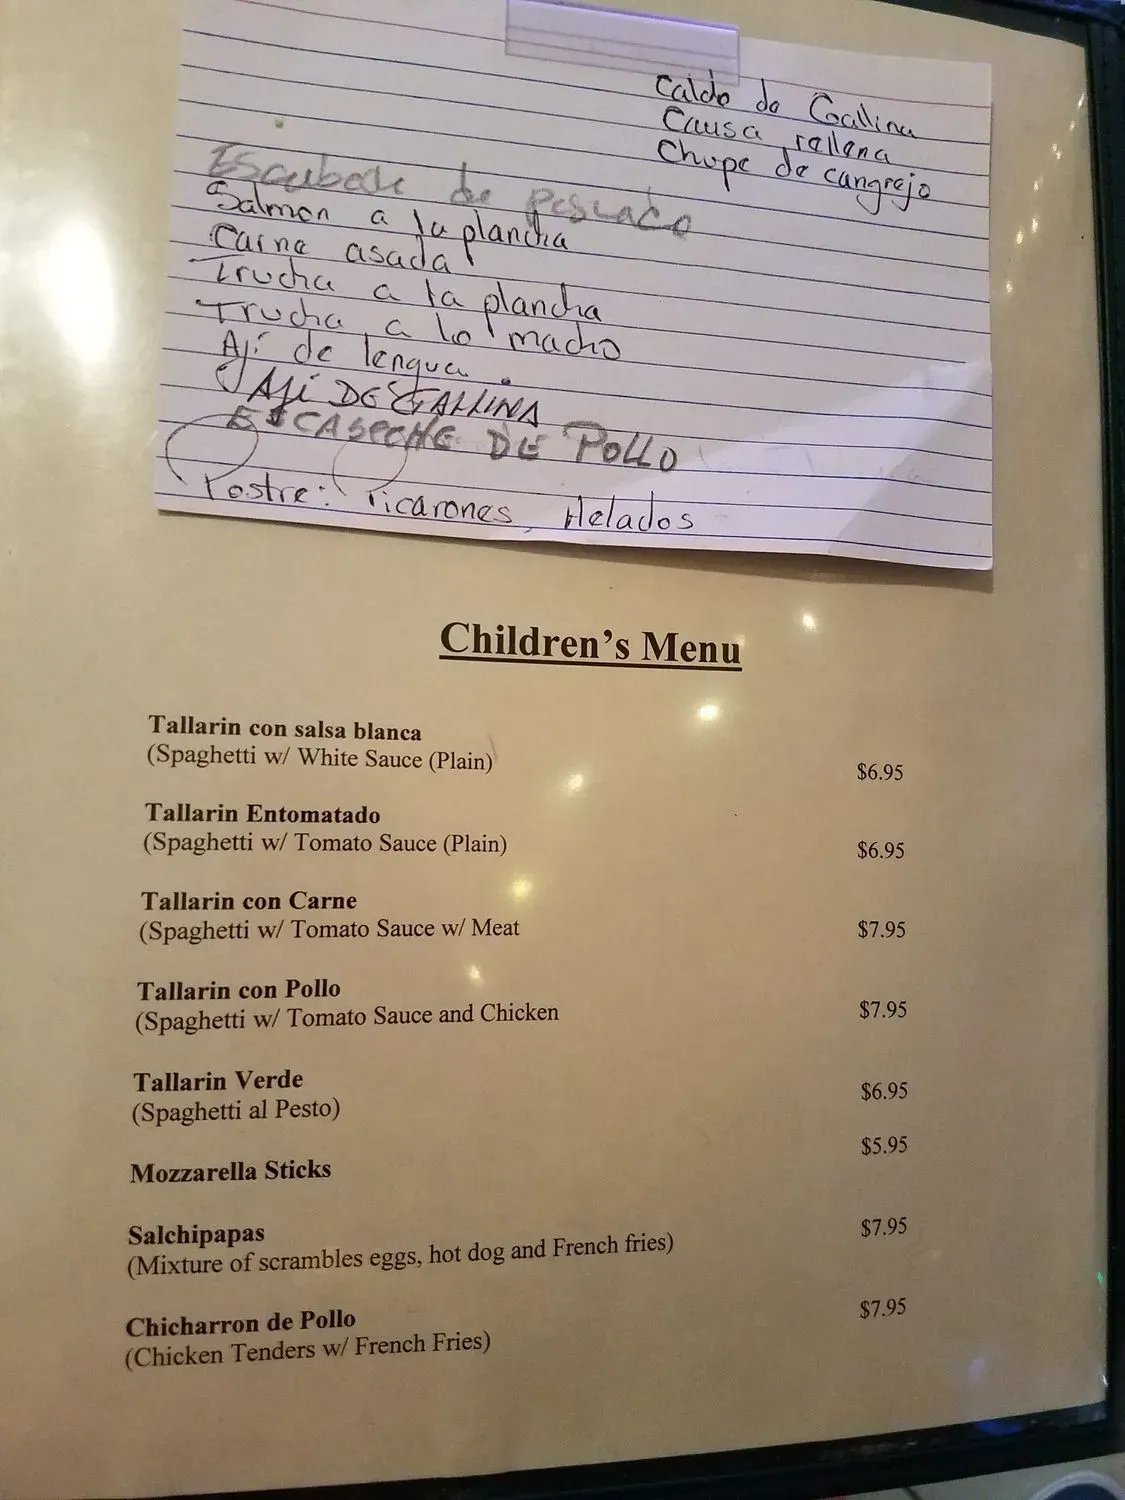 Caldo de Gallina
Causa rellena
Chupe de cangrejo
de Pescado
Salmon a la plancha
Carne asada
Trucha a la plancha
Trucha a lo macho
Ají de lengua.
AJÍ DE GALLINA
ESCABECHE DE POLLO
Postre: Picarones, Helados
Children's Menu
Tallarin con salsa blanca
(Spaghetti w/ White Sauce (Plain)
$6.95
Tallarin Entomatado
(Spaghetti w/ Tomato Sauce (Plain)
$6.95
Tallarin con Carne
(Spaghetti w/ Tomato Sauce w/ Meat
$7.95
Tallarin con Pollo
(Spaghetti w/ Tomato Sauce and Chicken
$7.95
Tallarin Verde
(Spaghetti al Pesto)
$6.95
Mozzarella Sticks
$5.95
Salchipapas
(Mixture of scrambles eggs, hot dog and French fries)
$7.95
Chicharron de Pollo
(Chicken Tenders w/ French Fries)
$7.95